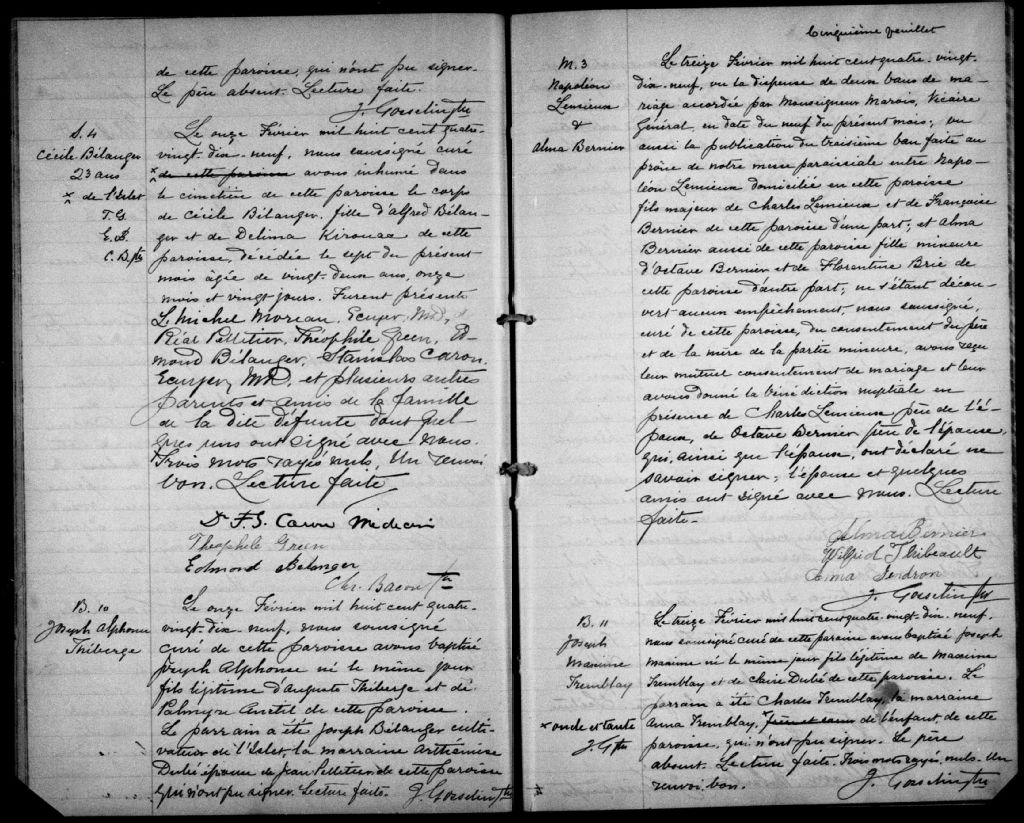 de cette paroisse, qui n'ont pu signer.
Le père absent. Lecture faite.
J. Gosselin Ptre
S. 4
Cécile Bélanger
23 ans
x de l'Islet
T. G
E. B.
C. B. Ptre
Le onze Février mil huit cent quatre-
vingt-dix-neuf, nous soussigné curé
x de cette paroisse avons inhumé dans
le cimetière de cette paroisse le corps
de Cécile Bélanger, fille d'Alfred Bélan-
ger et de Delima Kirouac de cette
paroisse, décédée le sept du présent
mois âgée de vingt-deux ans, onze
mois et vingt jours. Furent présents
Michel Moreau, Ecuyer, M.D.,
Pelletier, Théophile Green, Ed-
mond Bélanger, Stanislas Caron,
Ecuyer, MD. et plusieurs autres
parents et amis de la famille
de la dite défunte dont quel-
ques uns ont signé avec nous.
Trois mots rayés nuls. Un renvoi
bon. Lecture faite
Dr F. S. Caron Médecin
Théophile Green
Edmond Belanger
Chs. Bacon Ptr
B. 10
Joseph Alphonse
Thiberge
Le onze Février mil huit cent quatre-
vingt-dix-neuf, nous soussigné
curé de cette paroisse avons baptisé
Joseph Alphonse né le même jour
fils légitime d'Auguste Thiberge et de
Palmyre Anctil de cette paroisse.
Le parrain a été Joseph Bélanger culti-
vateur de l'Islet la marraine Arthémise
Dubé épouse de Jean Pelletier de cette paroisse
qui n'ont pu signer. Lecture faite. J. Gosselin Ptre
Cinquième feuillet
M. 3
Napoléon
Lemieux
&
Alma Bernier
Le treize Février mil huit cent quatre-vingt-
dix-neuf, vu la dispense de deux bans de ma-
riage accordée par Monseigneur Marois, Vicaire
Général, en date du neuf du présent mois; vu
aussi la publication du troisième ban faite au
prône de notre messe paroissiale entre Napo-
léon Lemieux domicilié en cette paroisse
fils majeur de Charles Lemieux et de Françoise
Bernier de cette paroisse d'une part; et Alma
Bernier aussi de cette paroisse fille mineure
d'Octave Bernier et de Florentine Brie de
cette paroisse d'autre part; ne s'étant décou-
vert aucun empêchement, nous soussigné,
curé de cette paroisse, du consentement du père
et de la mère de la partie mineure, avons reçu
leur mutuel consentement de mariage et leur
avons donné la bénédiction nuptiale en
présence de Charles Lemieux, père de l'é-
poux, de Octave Bernier père de l'épouse,
qui, ainsi que l'époux, ont déclaré ne
savoir signer; l'épouse et quelques
amis ont signé avec nous. Lecture
faite-
Alma Bernier
Wilfrid Thibeault
Gendron
J. Gosselin Ptre
B. 11
Joseph
Maxime
Tremblay
x oncle et tante
J. G Ptre
Le treize Février mil huit cent quatre-vingt-dix-neuf,
nous soussigné curé de cette paroisse avons baptisé Joseph
Maxime né le même jour fils légitime de Maxime
Tremblay et de Claire Dubé de cette paroisse. Le
parrain a été Charles Tremblay, la marraine
Anna Tremblay, x frère et sœur de l'enfant, de cette
paroisse, qui n'ont pu signer. Le père
absent. Lecture faite. Trois mots rayés nuls. Un
renvoi bon.
J. Gosselin Ptre